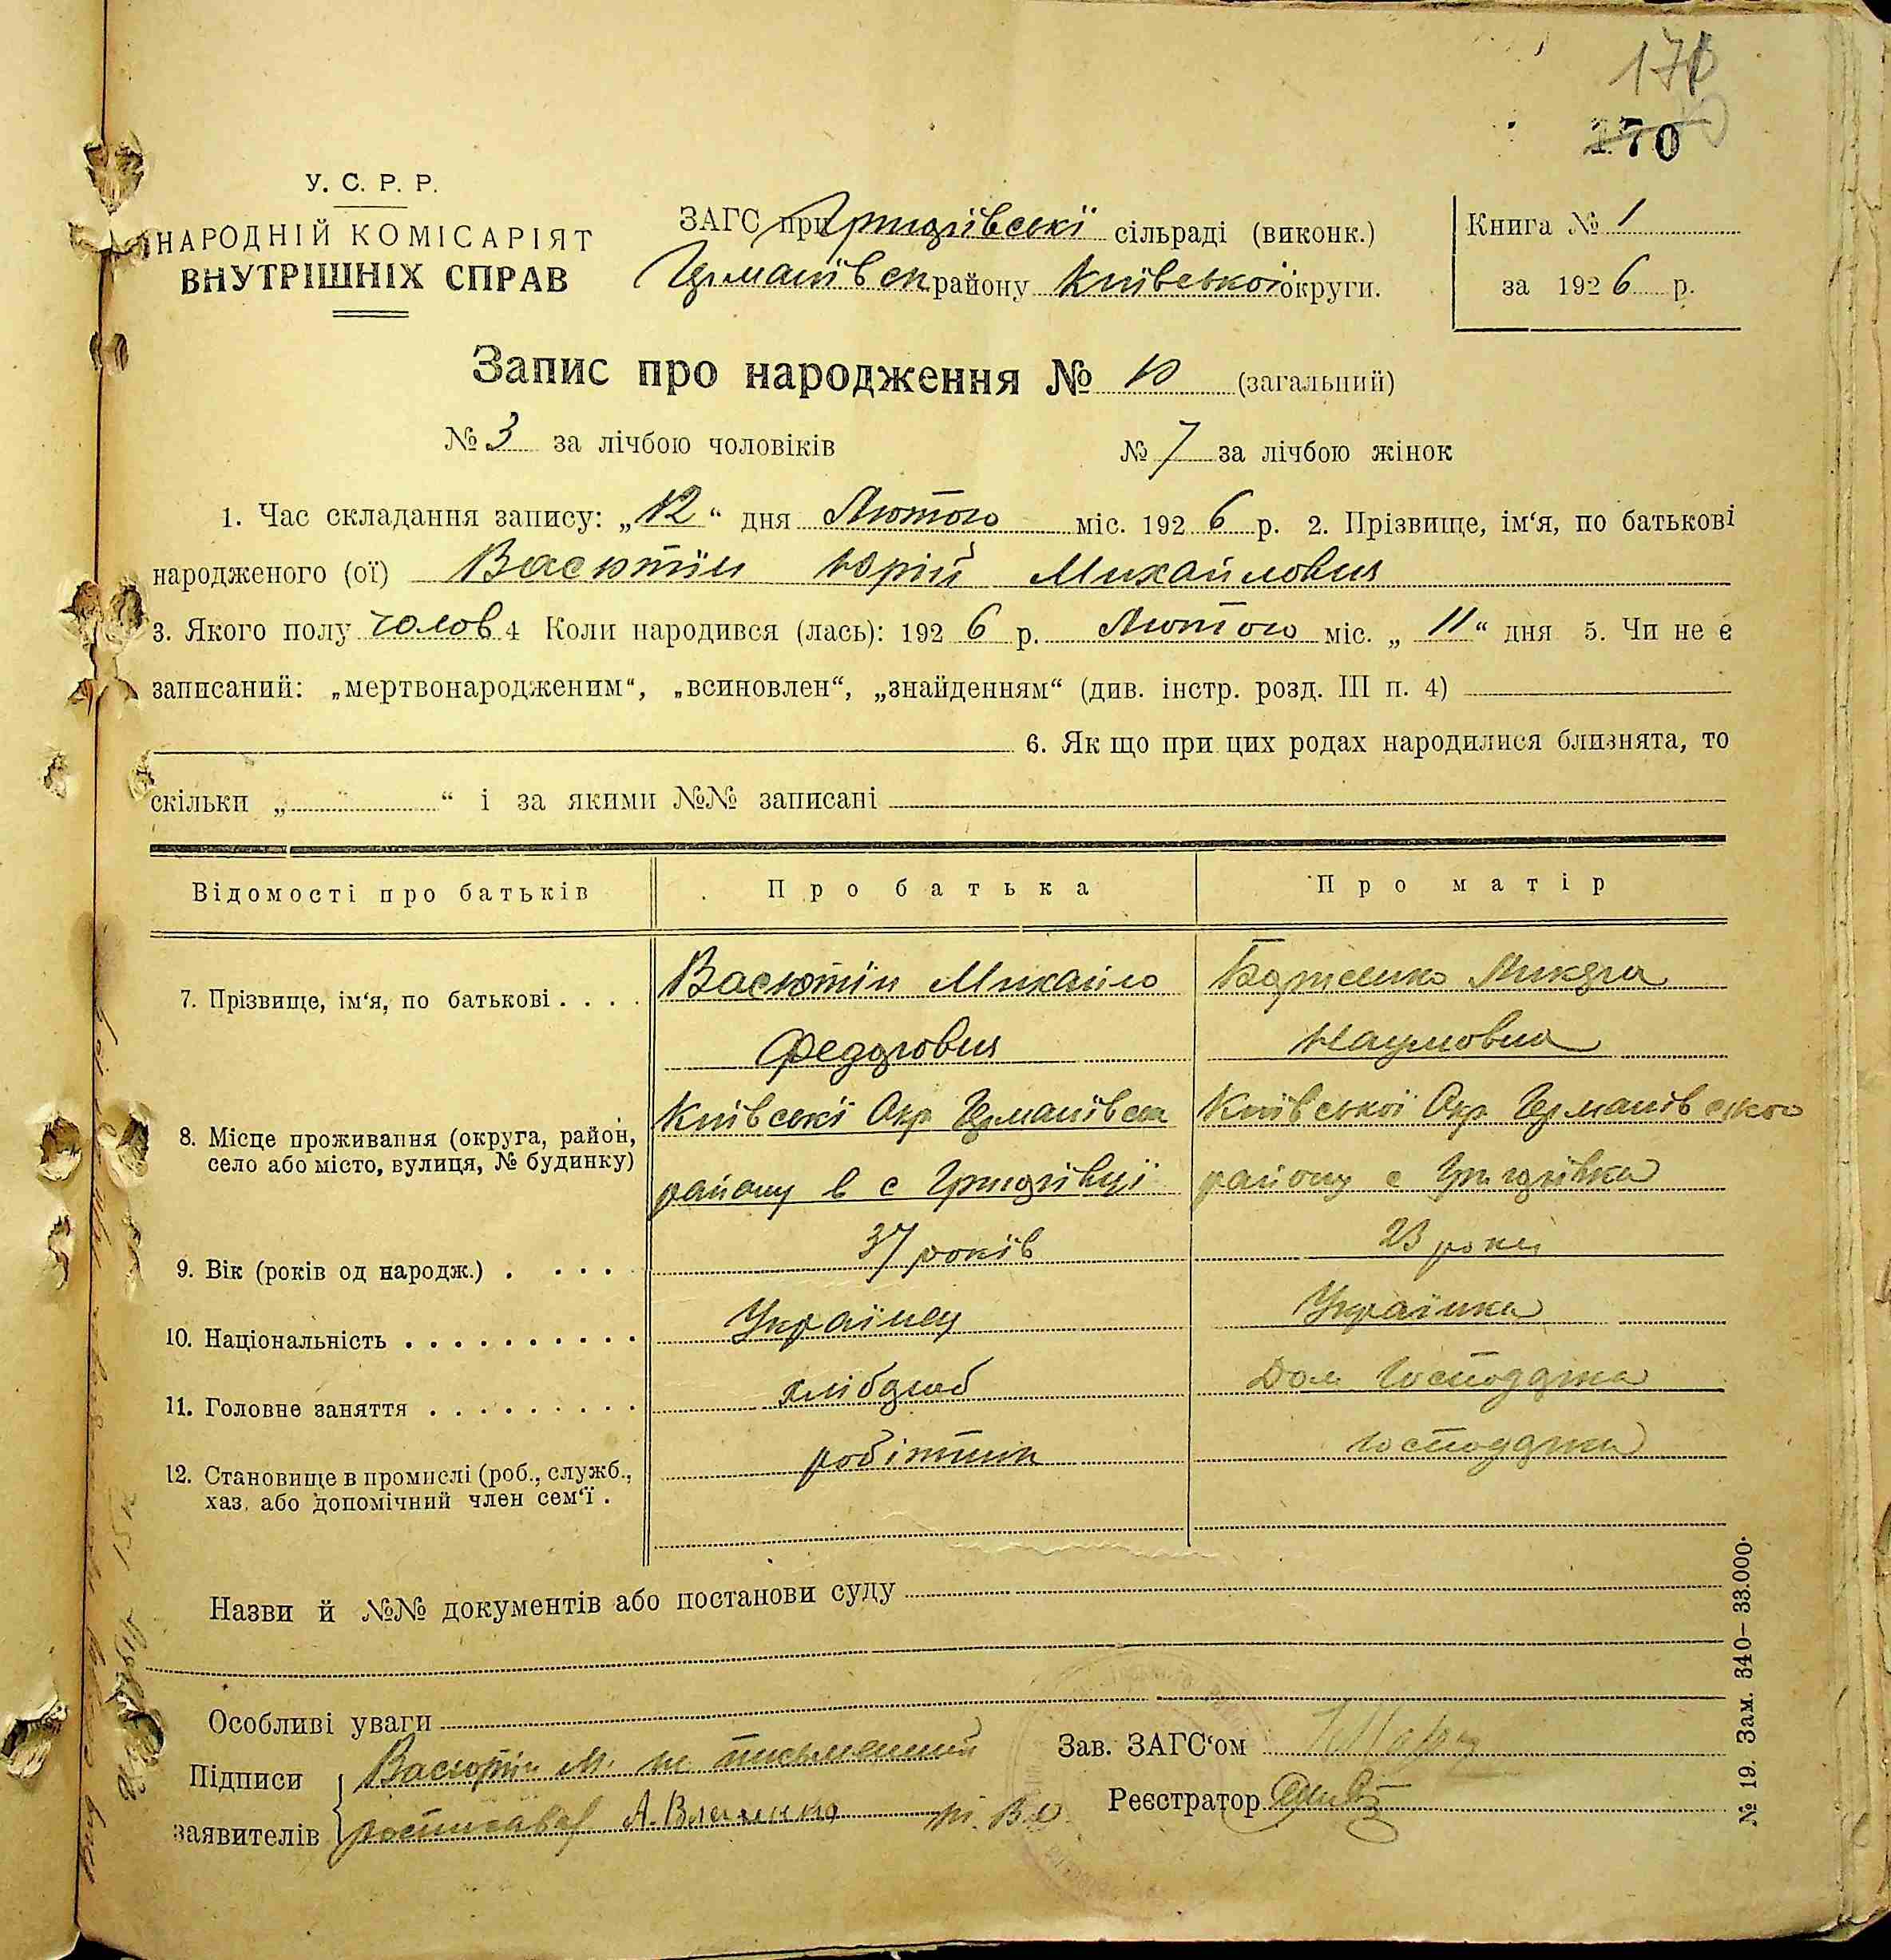 170
У. С. Р. Р.
НАРОДНІЙ КОМІСАРІЯТ
ВНУТРІШНІХ СПРАВ
ЗАГС при Григорівські сільраді (виконк.)
Германівськ району Київської округи.
Книга № 1
за 1926 р.
Запис про народження № 10 (загальний)
№ 3 за лічбою чоловіків № 7 за лічбою жінок
1. Час складання запису: „12“ дня Лютого міс. 1926 р. 2. Прізвище, ім‘я, по батькові
народженого (ої) Васютін Юрій Михайлович
3. Якого полу чолов 4 Коли народився (лась): 1926 р. Лютого міс. „11“ дня 5. Чи не є
записаний: „мертвонародженим“, „всиновлен“, „знайденням“ (див. інстр. розд. III п. 4)
6. Як що при цих родах народилися близнята, то
скільки „ “ і за якими №№ записані
Відомості про батьків Про батька Про матір
7. Прізвище, ім‘я, по батькові . . . . Васютін Михайло Борисенко
Федорович Наумовна
8. Місце проживання (округа, район, село або місто, вулиця, № будинку)
Київські Окр Германівськ Київської Окр Германівського
району в с Григорівці району с Григорівка
9. Вік (років од народж.) . . . . . 37 років 23 роки
10. Національність . . . . . . . . . . Українец Українка
11. Головне заняття . . . . . . . . . хлібороб Дом Господарка
12. Становище в промислі (роб., служб., хаз. або допомічний член сем‘ї . робітник господарка
Назви й №№ документів або постанови суду
Особливі уваги
Підписи заявителів
Васютін М. не письменний
росписавсь А.
Зав. ЗАГС‘ом
Реєстратор
№ 19. Зам. 340–33.000.